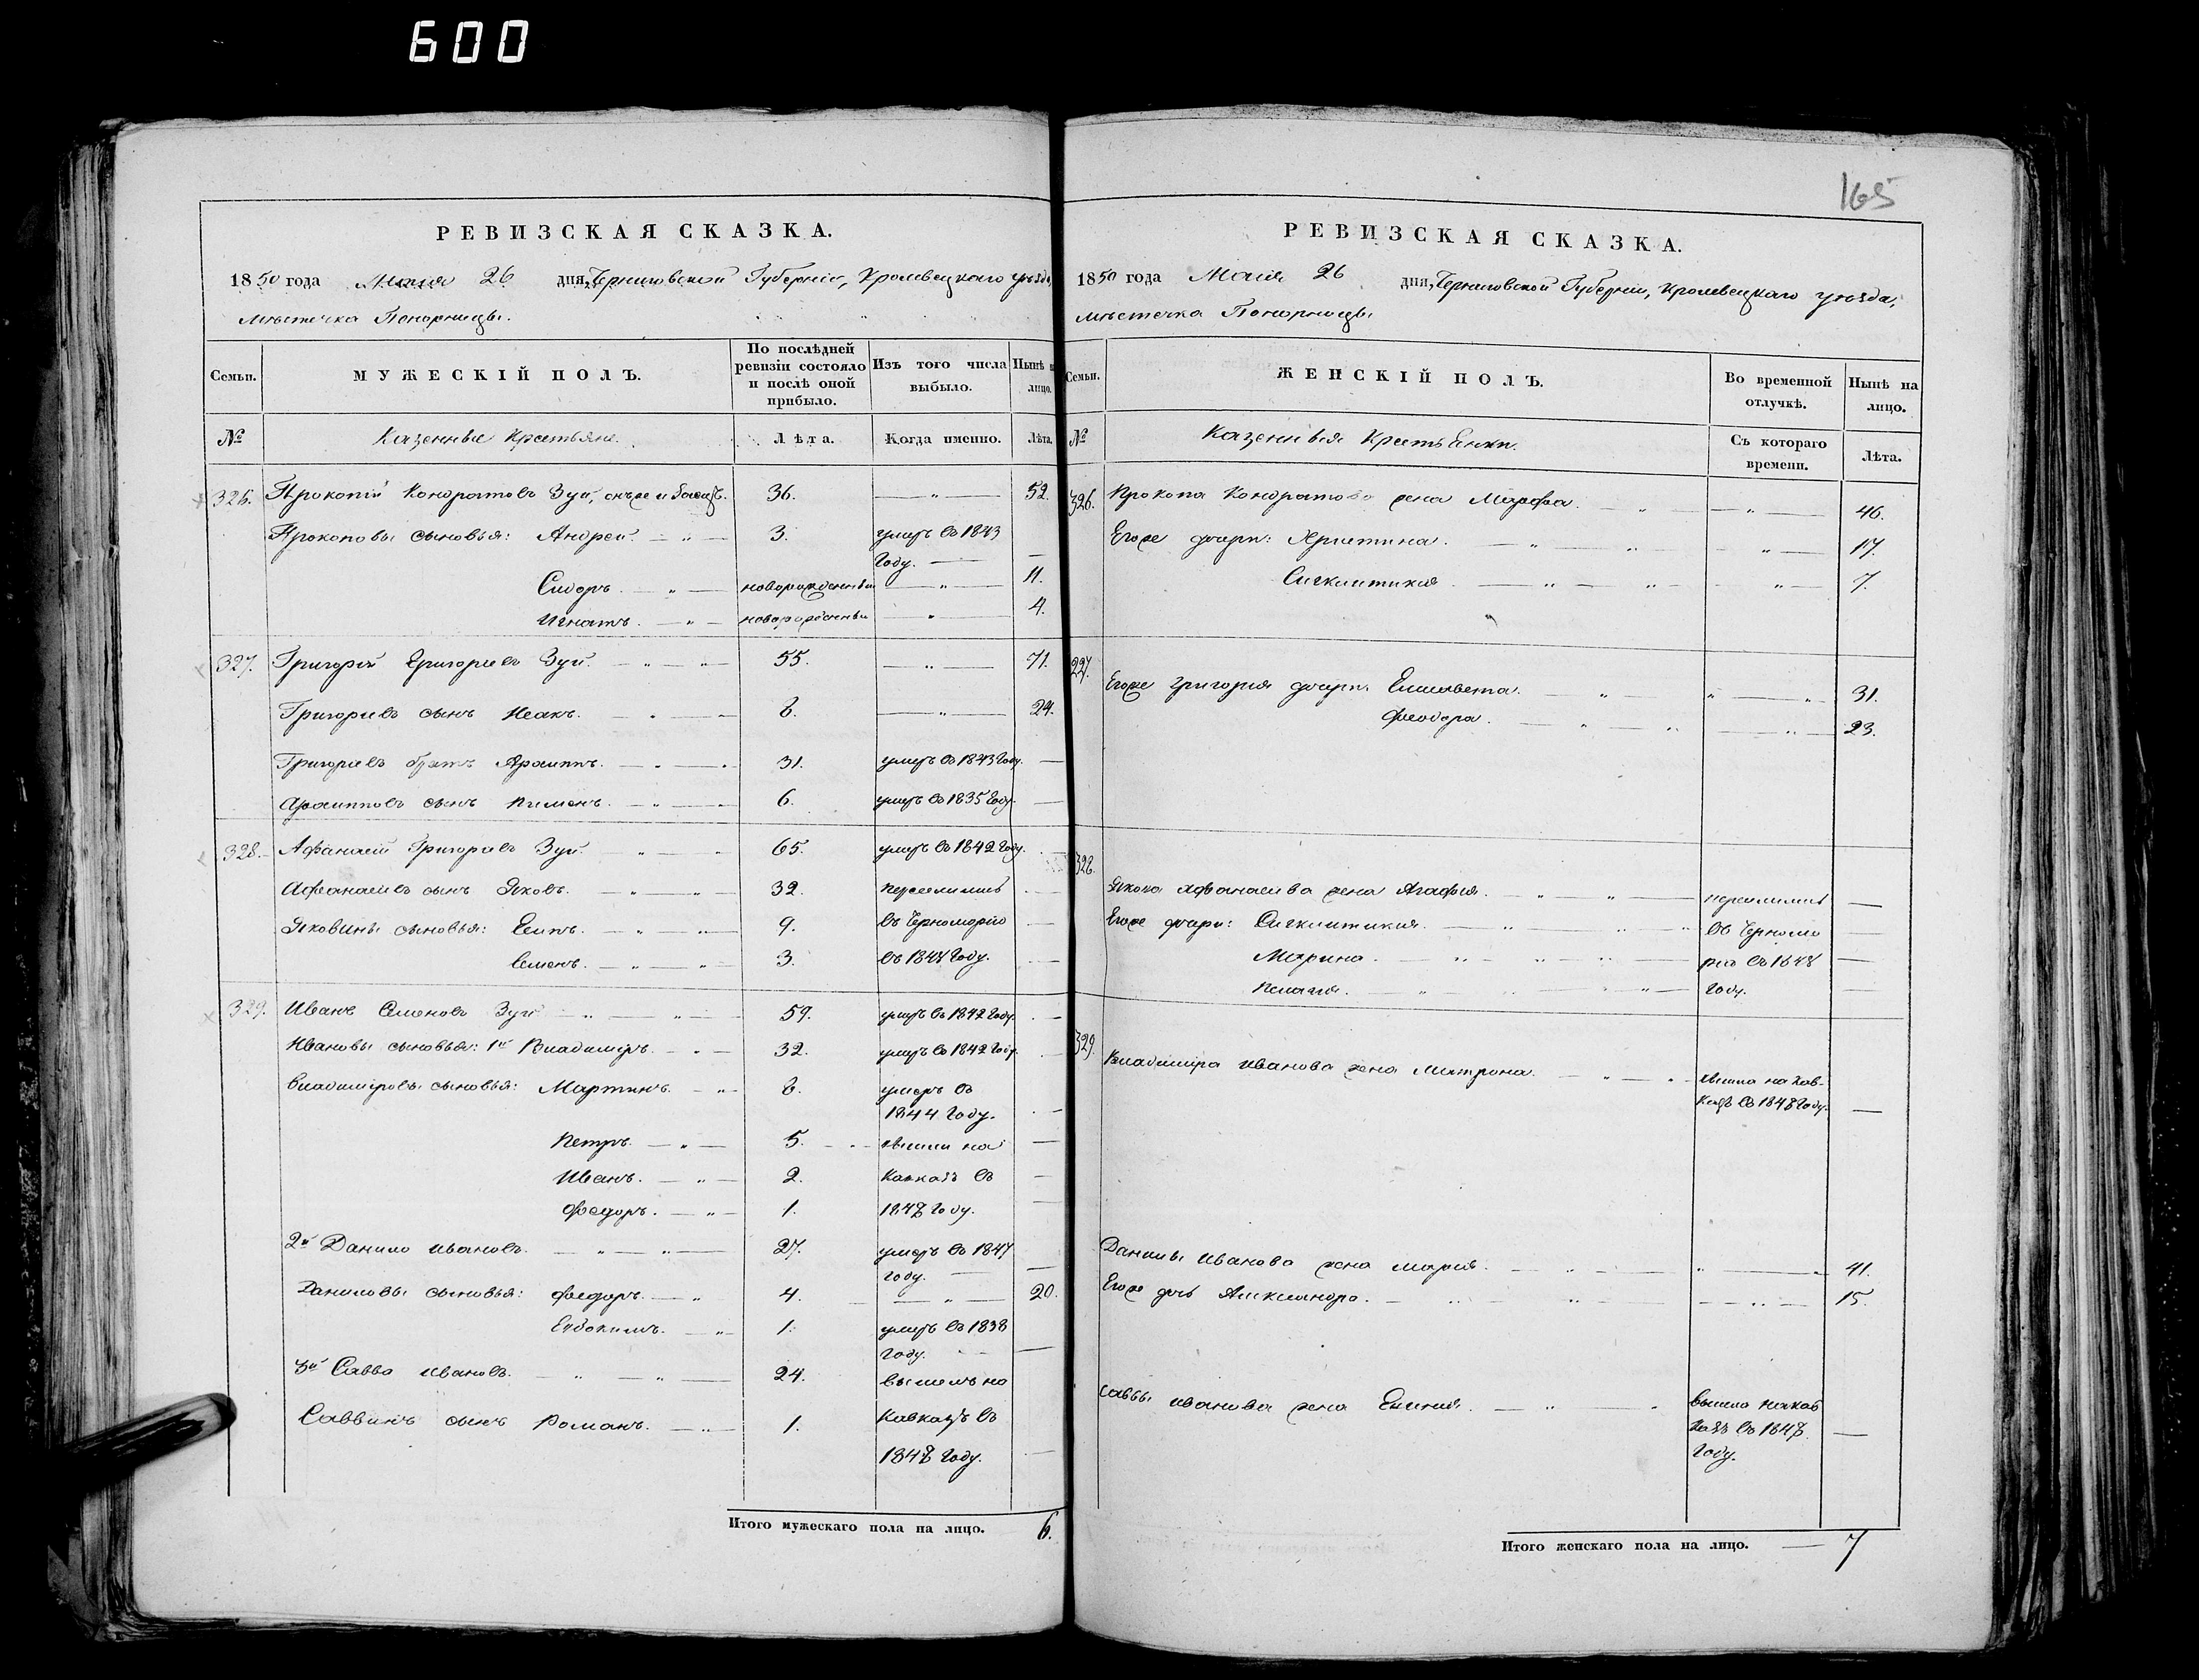 600
165
РЕВИЗСКАЯ СКАЗКА.
1850 года Маия 26 дня, Черниговской Губерніи, Кролевецкаго уѣзда,
мѣстечка Понорницы.
Семьи.
МУЖЕСКІЙ ПОЛЪ.
По послѣдней ревизіи состояло и послѣ оной прибыло.
Изъ того числа выбыло.
Нынѣ на лицо.
№
Казенные Крестьяне.
Лѣта.
Когда именно.
Лѣта.
326. Прокопій Кондратовъ Зуй, онъ же и 36. — " — 52.
Прокоповы сыновья: Андрей. — " — 3. умеръ въ 1843
году. —
Сидоръ. — " — новорожденный — " — 11.
Игнатъ. — " — новорожденный — " — 4.
327. Григорій Григорьевъ Зуй. — " — " — 55. — " — 71.
Григорьевъ сынъ Исакъ. — " — 8. — " — 24.
Григорьевъ братъ Архиппъ. — " — 31. умеръ въ 1843 году. —
Архипповъ сынъ Пименъ. — " — 6. умеръ въ 1835 году. —
328. Афанасій Григорьевъ Зуй. — " — 65. умеръ въ 1842 году. —
Афанасіевъ сынъ Яковъ. — " — " — 32. переселились —
Яковины сыновья: Есипъ. — " — " — 9. въ Черноморію —
Семенъ. — " — " — 3. въ 1848 году. —
329. Иванъ Семеновъ Зуй — " — " — 59. умеръ въ 1842 году. —
Ивановы сыновья: 1й Владиміръ. — " — 32. умеръ въ 1842 году. —
Владиміровы сыновья: Мартинъ. — " — 8. умеръ въ
1844 году. —
Петръ. — " — 5. вышли на —
Иванъ. — " — 2. Кавказъ въ —
Федоръ. — " — 1. 1848 году. —
2й Данило Ивановъ. — " — " — 27. умеръ въ 1847
году. —
Даниловы сыновья: Федоръ. — " 4. — " — 20.
Евдокимъ. — " — 1. умеръ въ 1838
году. —
3й Савва Ивановъ. — " — " — 24. вышелъ на
Саввинъ сынъ Романъ. — " — 1. Кавказъ въ
1848 году. —
Итого мужескаго пола на лицо. 6.
РЕВИЗСКАЯ СКАЗКА.
1850 года Маия 26 дня, Черниговской Губерніи, Кролевецкаго уѣзда,
мѣстечка Понорницы.
Семьи.
ЖЕНСКІЙ ПОЛЪ.
Во временной отлучкѣ.
Нынѣ на лицо.
№
Казенныя Крестьянки.
Съ котораго времени.
Лѣта.
326. Прокопа Кондратова жена Марфа. — " — — " — 46.
Егоже дочери: Христина. — " — " — " — 17.
Сиклитикия — " — " — " — 7.
227. Егоже Григорія дочери: Елисавета. — " — " — " 31.
Феодора. — " — " — " — 23.
328.
Якова Афанасиева жена Агафия. — " — " — переселились —
Егоже дочери: Сиклитикия. — " — " — " въ Черномо —
Марина. — " — " — " — рію въ 1848 —
Пелагия. — " — " — году. —
329.
Владиміра Иванова жена Матрона. — " — " — вышла на Кав-
казъ въ 1848 году. —
Данилы Иванова жена Мария. — " — " — " 41.
Егоже дочь Александра. — " — " — " — 15.
Саввы Иванова жена — " — " вышла на Кав
казъ въ 1848 —
году.
Итого женскаго пола на лицо. — 7